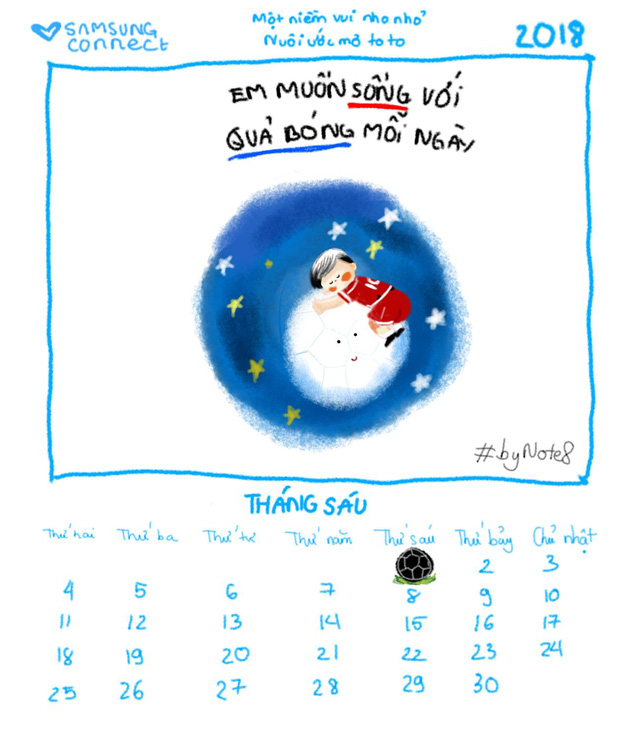 SAMSUNG
connect
Một niềm vui nho nhỏ
Nuôi ước mơ to to
2018
EM MUỐN SỐNG VỚI
QUẢ BÓNG MỖI NGÀY
#byNote8
THÁNG SÁU
Thứ hai Thứ ba Thứ tư Thứ năm Thứ sáu Thứ bảy Chủ nhật
2 3
4 5 6 7 8 9 10
11 12 13 14 15 16 17
18 19 20 21 22 23 24
25 26 27 28 29 30